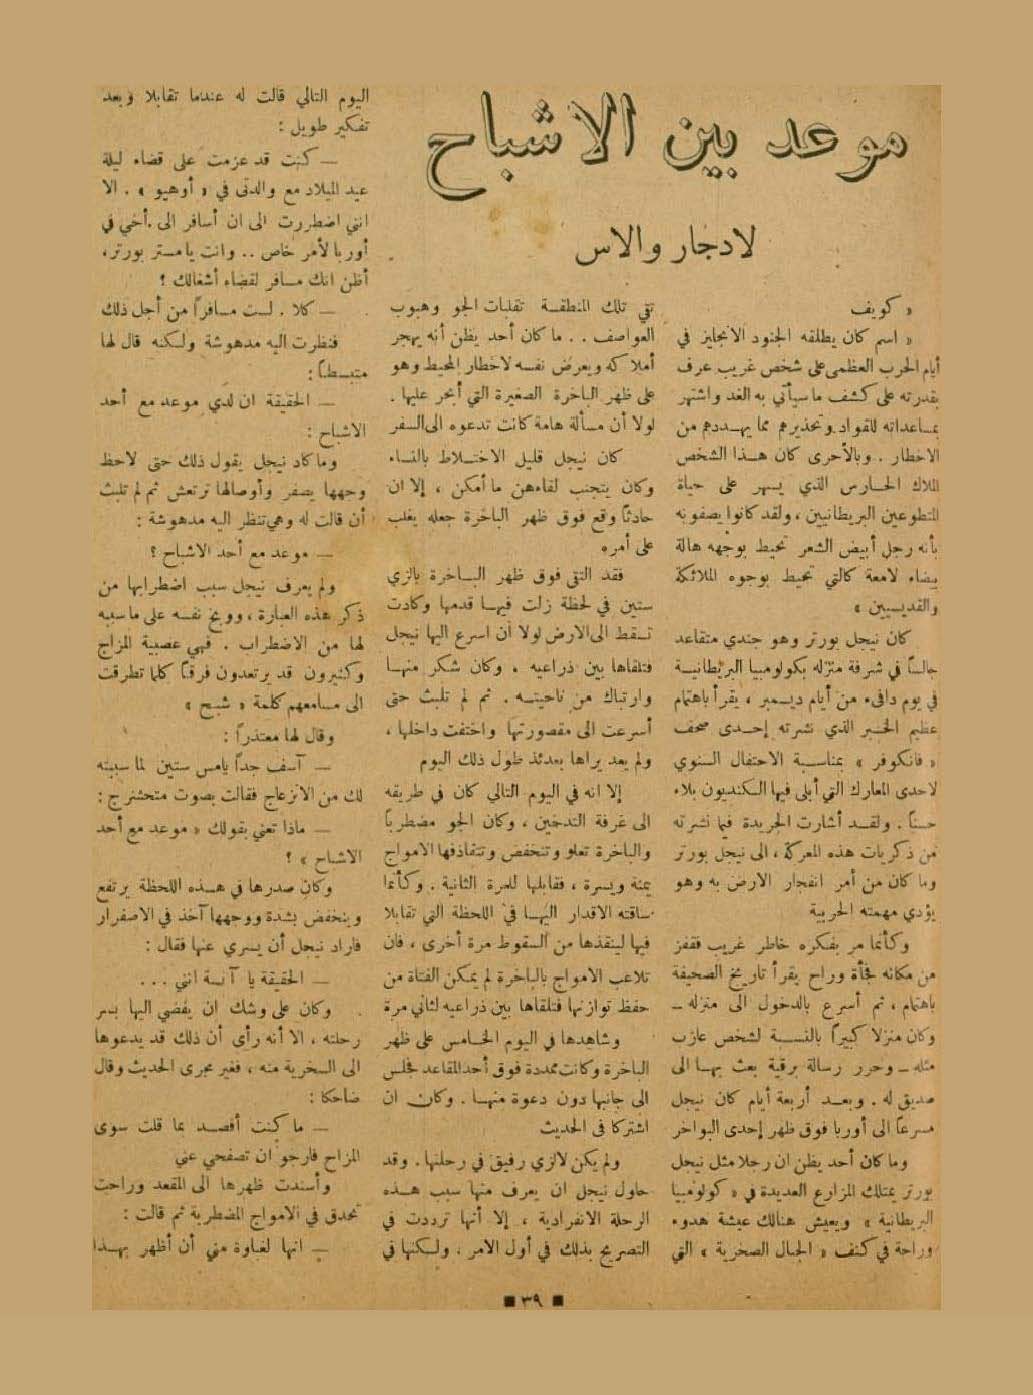 موعد بين الاشباح
لادجار والاس
« كويف
« اسم كان يطلقه الجنود الانجليز في
أيام الحرب العظمى على شخص غريب عرف
بقدرته على كشف ما سيأتي به الغد واشتهر
بمساعداته للقواد وتحذيرهم مما يهددهم من
الاخطار . . وبالأحرى كان هذا الشخص
الملاك الحارس الذي يسهر على حياة
المتطوعين البريطانيين ، ولقد كانوا يصفونه
بأنه رجل أبيض الشعر تحيط بوجهه هالة
بيضاء لامعة كالتي تحيط بوجوه الملائكة
والقديسيين »
كان نيجل بورتر وهو جندي متقاعد
جالساً في شرفة منزله بكولومبيا البريطانية
في يوم دافىء من أيام ديسمبر ، يقرأ باهتمام
عظيم الخبر الذي نشرته إحدى صحف
« فانكوفر » بمناسبة الاحتفال السنوي
لاحدى المعارك التي أبلى فيها الكنديون بلاء
حسناً . ولقد أشارت الجريدة فيما نشرته
من ذكريات هذه المعركة ، الى نيجل بورتر
وما كان من أمر انفجار الارض به وهو
يؤدي مهمته الحربية
وكأنما مر بفكره خاطر غريب فقفز
من مكانه فجأة وراح يقرأ تاريخ الصحيفة
باهتمام ، ثم أسرع بالدخول الى منزله ـ
وكان منزلا كبيراً بالنسبة لشخص عازب
مثله ـ وحرر رسالة برقية بعث بها الى
صديق له . وبعد أربعة أيام كان نيجل
مسرعاً الى أوربا فوق ظهر إحدى البواخر
وما كان أحد يظن ان رجلا مثل نيجل
بورتر يمتلك المزارع العديدة في « كولومبيا
البريطانية » ويعيش هنالك عيشة هدوء
وراحة في كنف « الجبال الصخرية » التي
تقي تلك المنطقة تقلبات الجو وهبوب
العواصف . . ما كان أحد يظن أنه يهجر
أملاكه ويعرض نفسه لاخطار المحيط وهو
على ظهر الباخرة الصغيرة التي أبحر عليها .
لولا أن مسألة هامة كانت تدعوه الى السفر
كان نيجل قليل الاختلاط بالنساء
وكان يتجنب لقاءهن ما أمكن ، إلا ان
حادثاً وقع فوق ظهر الباخرة جعله يغلب
على أمره
فقد التقى فوق ظهر الباخرة بالزي
ستين في لحظة زلت فيها قدمها وكادت
تسقط الى الارض لولا أن اسرع اليها نيجل
فتلقاها بين ذراعيه . وكان شكر منها
وارتباك من ناحيته . ثم لم تلبث حتى
أسرعت الى مقصورتها واختفت داخلها ،
ولم يعد يراها بعدئذ طول ذلك اليوم
إلا انه في اليوم التالي كان في طريقه
الى غرفة التدخين ، وكان الجو مضطرباً
والباخرة تعلو وتنخفض وتتقاذفها الامواج
يمنة ويسرة ، فقابلها للمرة الثانية . وكأنما
ساقته الاقدار اليها في اللحظة التي تقابلا
فيها لينقذها من السقوط مرة أخرى ، فان
تلاعب الامواج بالباخرة لم يمكن الفتاة من
حفظ توازنها فتلقاها بين ذراعيه لثاني مرة
وشاهدها في اليوم الخامس على ظهر
الباخرة وكانت ممددة فوق أحد المقاعد فجلس
الى جانبها دون دعوة منها . وكان ان
اشتركا في الحديث
ولم يكن لالزي رفيق في رحلتها . وقد
حاول نيجل ان يعرف منها سبب هذه
الرحلة الانفرادية ، إلا أنها ترددت في
التصريح بذلك في أول الامر . ولكنها في
اليوم التالي قالت له عندما تقابلا وبعد
تفكير طويل :
ـ كنت قد عزمت على قضاء ليلة
عيد الميلاد مع والدتى في « أوهيو » . الا
انني اضطررت الى ان أسافر الى أخي في
أوربا لأمر خاص . . وانت يا مستر بورتر ،
أظن انك مسافر لقضاء أشغالك ؟
ـ كلا . لست مسافراً من أجل ذلك
فنظرت اليه مدهوشة ولكنه قال لها
متبسطاً :
ـ الحقيقة ان لدي موعد مع أحد
الاشباح :
وما كاد نيجل يقول ذلك حتى لاحظ
وجهها يصفر وأوصالها ترتعش ثم لم تلبث
أن قالت له وهي تنظر اليه مدهوشة :
ـ موعد مع أحد الاشباح ؟
ولم يعرف نيجل سبب اضطرابها من
ذكر هذه العبارة ، ووبخ نفسه على ما سببه
لها من الاضطراب . فهي عصبية المزاج
وكثيرون قد يرتعدون فرقاً كلما تطرقت
الى مسامعهم كلمة « شبح »
وقال لها معتذراً :
ـ آسف جداً يا مس ستين لما سببته
لك من الانزعاج فقالت بصوت متحشرج :
ـ ماذا تعني بقولك « موعد مع أحد
الاشباح » ؟
وكان صدرها في هذه اللحظة يرتفع
وينخفض بشدة ووجهها آخذ في الاصفرار
فاراد نيجل أن يسري عنها فقال :
ـ الحقيقة يا آنسة انني . . .
وكان على وشك ان يفضي اليها بسر
رحلته ، الا أنه رأى أن ذلك قد يدعوها
الى السخرية منه ، فغير مجرى الحديث وقال
ضاحكا :
ـ ما كنت أقصد بما قلت سوى
المزاح فارجو ان تصفحي عني
وأسندت ظهرها الى المقعد وراحت
تحدق في الامواج المضطربة ثم قالت :
ـ انها لغباوة مني أن أظهر بهذا
■ ٣٩ ■